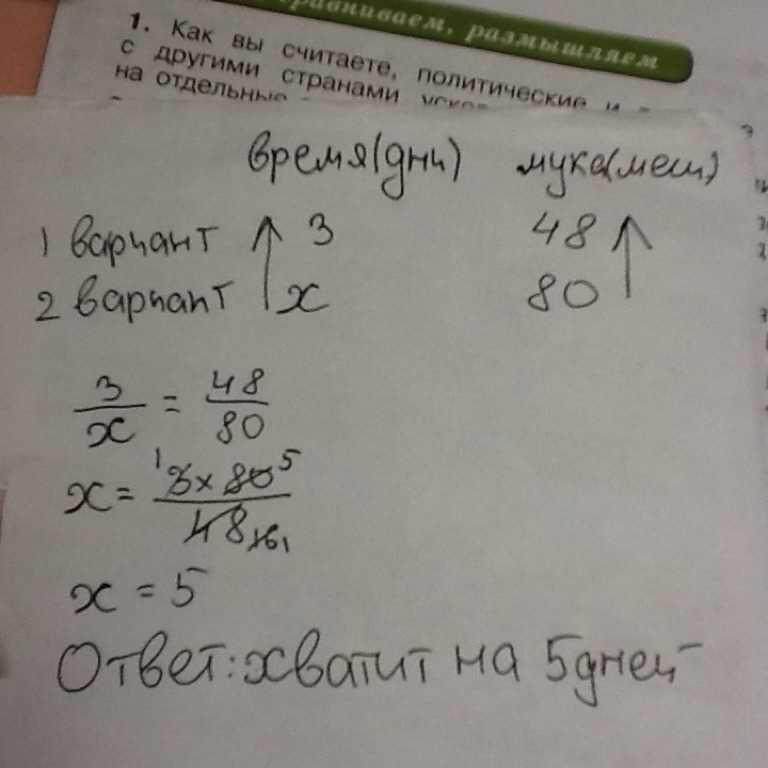 равниваем, размышляем
1. Как вы считаете, политические и
с другими странами
на отдельные
время(дни) мука(меш)
1 вариант ↑ 3 48 ↑
2 вариант x 80
3/x = 48/80
x = ¹3 x 80⁵ / 48 16 1
x = 5
Ответ: хватит на 5 дней